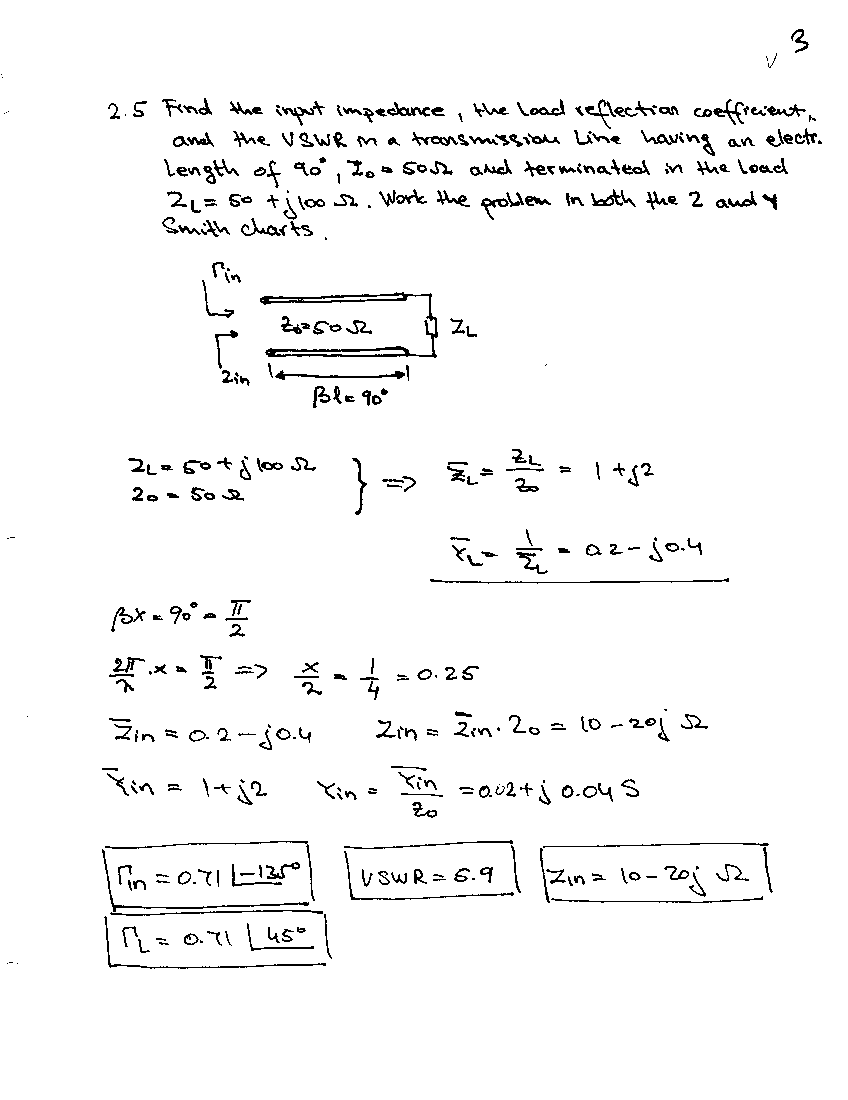 3
2.5 Find the input impedance, the load reflection coefficient,
and the VSWR in a transmission line having an electr.
length of 90°, Z₀ = 50Ω and terminated in the load
Z_L = 50 + j100 Ω. Work the problem in both the Z and Y
Smith charts.
Γin
Z₀=50Ω Z_L
Zin
βl = 90°
Z_L = 50 + j100 Ω } => Z̄_L = Z_L / Z₀ = 1 + j2
Z₀ = 50 Ω
Ȳ_L = 1 / Z̄_L = 0.2 - j0.4
βx = 90° = π/2
2π/λ · x = π/2 => x/λ = 1/4 = 0.25
Z̄in = 0.2 - j0.4 Zin = Z̄in · Z₀ = 10 - 20j Ω
Ȳin = 1 + j2 Yin = Ȳin / Z₀ = 0.02 + j 0.04 S
Γin = 0.71 ∠-135° VSWR = 5.9 Zin = 10 - 20j Ω
Γ_L = 0.71 ∠45°